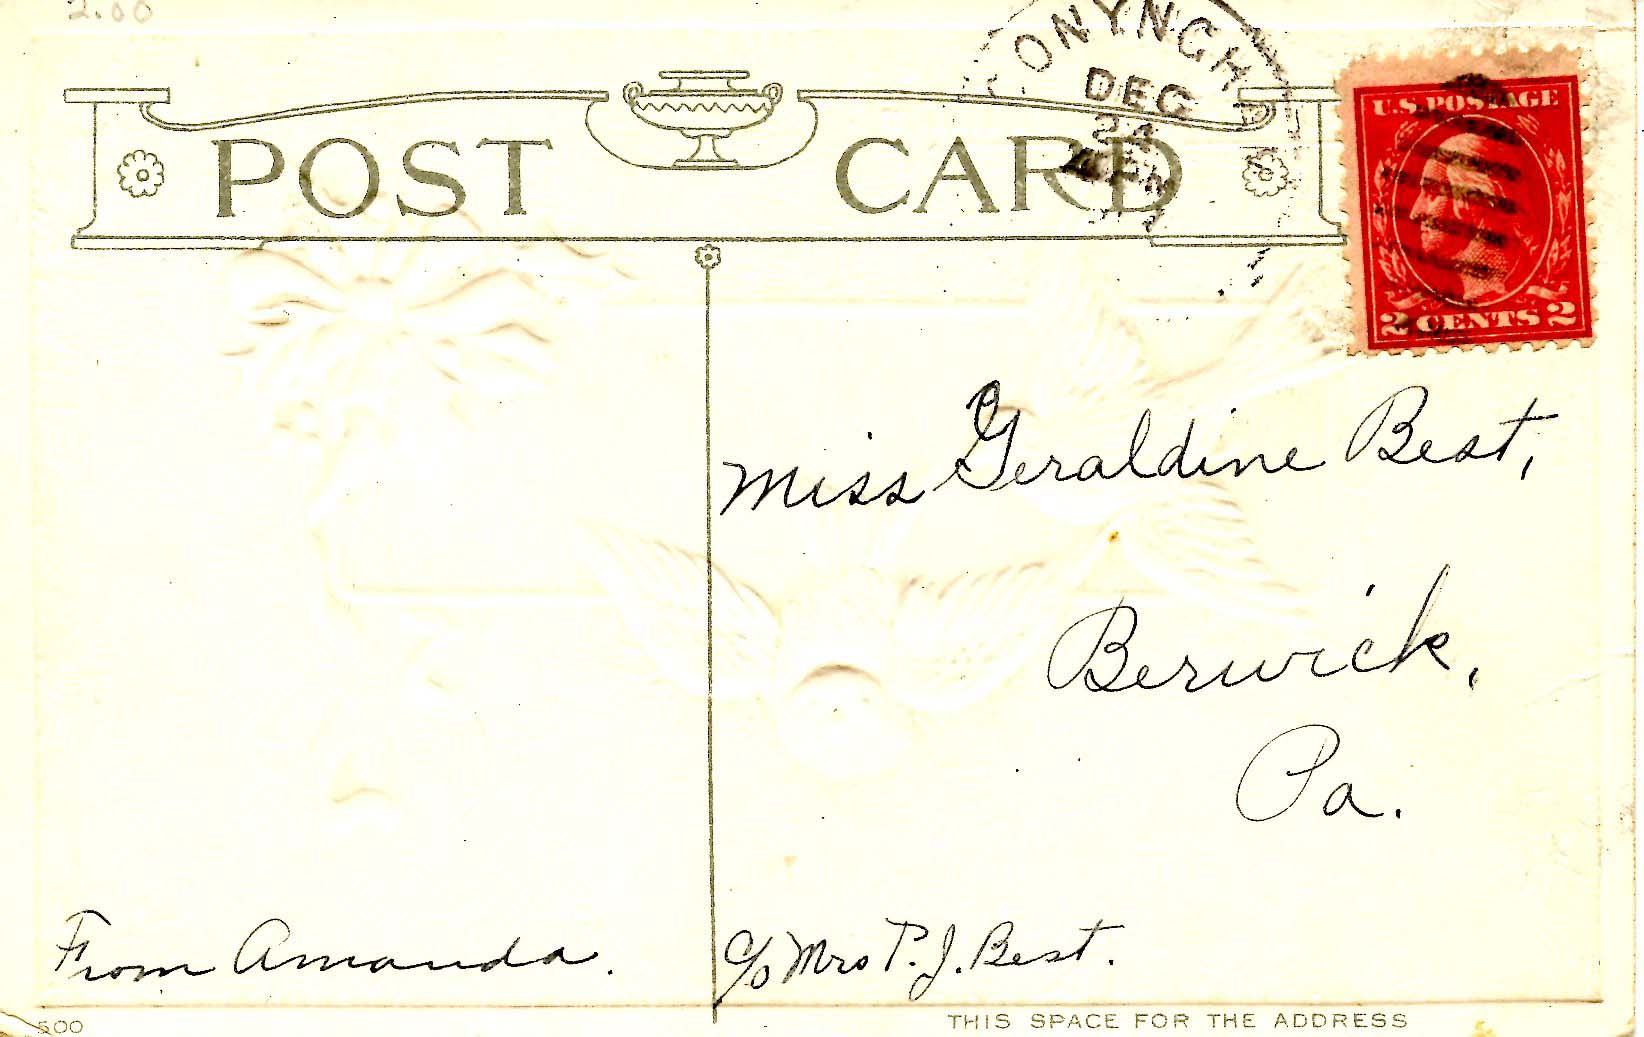 2.00
CONYNGHA
DEC
24
POST CARD
U.S. POSTAGE
2 CENTS 2
Miss Geraldine Best,
Berwick,
Pa.
From Amanda.
c/o Mrs T. J. Best.
500
THIS SPACE FOR THE ADDRESS